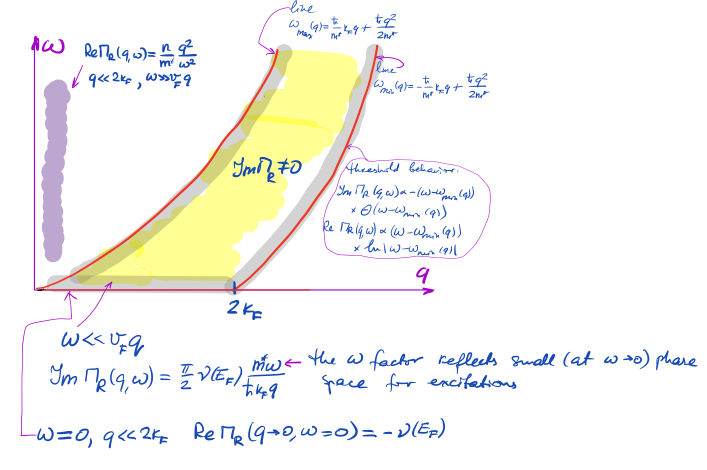 line
ω_max(q)=ħ/m* k_F q + ħq²/2m*
ω
ReΠ_R(q,ω)=n/m* q²/ω²
q<<2k_F, ω>>v_F q
line
ω_min(q)=-ħ/m* k_F q + ħq²/2m*
ImΠ_R≠0
threshold behavior:
ImΠ_R(q,ω)∝-(ω-ω_min(q))
×θ(ω-ω_min(q))
ReΠ_R(q,ω)∝(ω-ω_min(q))
×ln|ω-ω_min(q)|
q
2k_F
ω<<v_F q
ImΠ_R(q,ω)=π/2 ν(E_F) m*ω/ħk_F q ← the ω factor reflects small (at ω→0) phase
space for excitations
ω=0, q<<2k_F ReΠ_R(q→0,ω=0)=-ν(E_F)